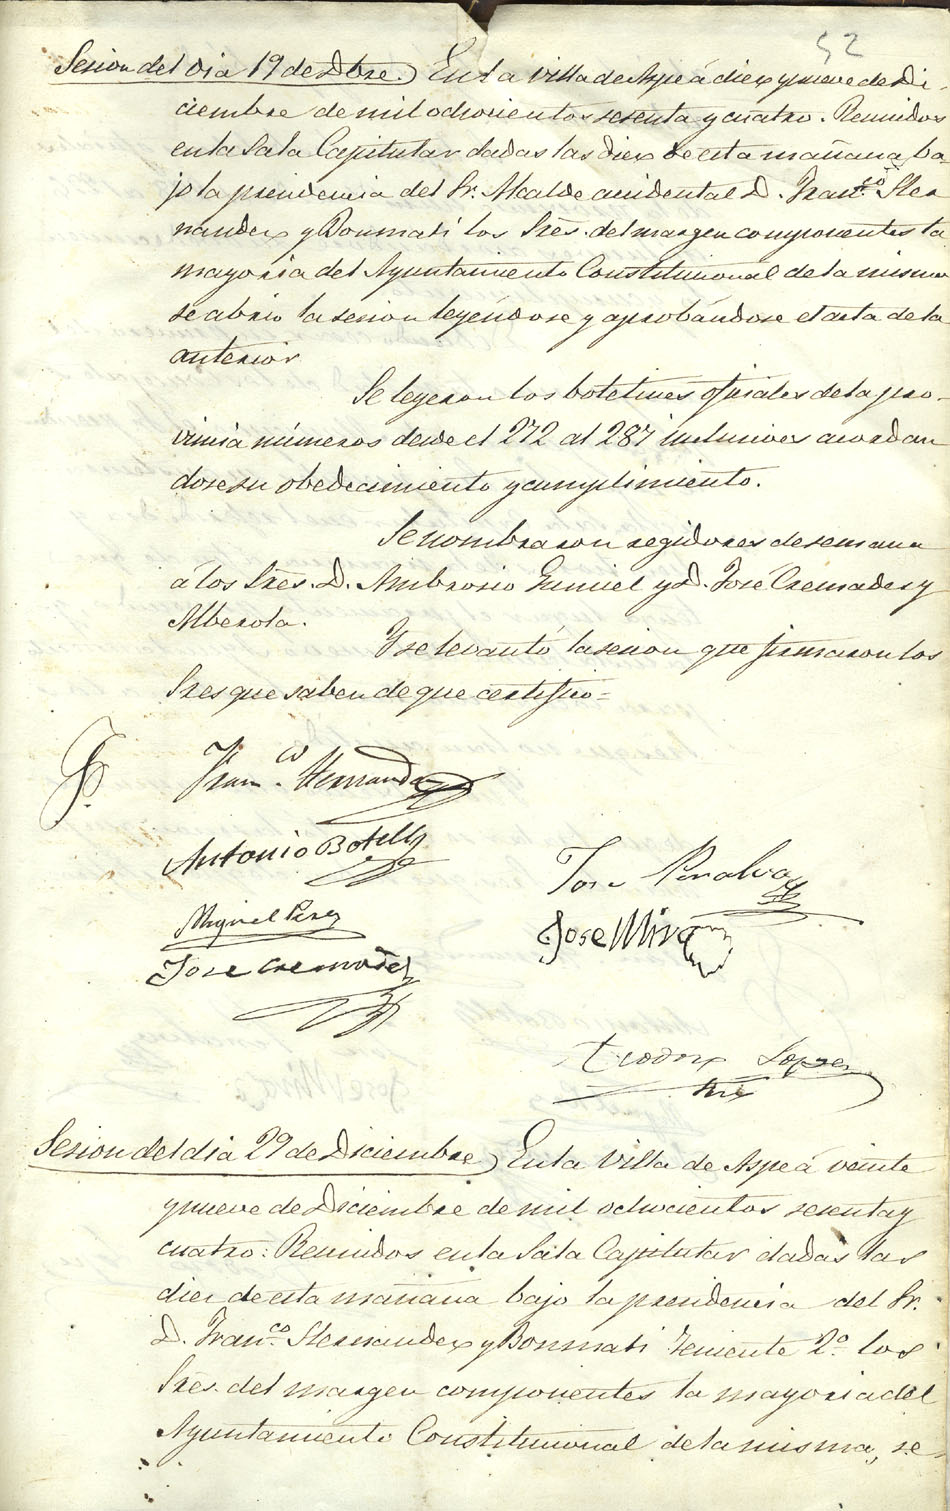 52
Sesion del dia 19 de Dbre. En la villa de Aspe á diez y nueve de Di-
ciembre de mil ochocientos sesenta y cuatro. Reunidos
en la Sala Capitular dadas las diez de esta mañana, ba-
jo la presidencia del Sr. Alcalde accidental D. Franco. Her-
nandez y Bonmati los Sres. del margen componentes la
mayoria del Ayuntamiento Constitucional de la misma
se abrio la sesion leyéndose y aprobándose el acta de la
anterior
Se leyeron los boletines oficiales de la pro-
vincia números desde el 272 al 287 inclusives acordan
dose su obedecimiento y cumplimiento.
Se nombraron regidores de semana
á los Sres. D. Ambrosio Eumiel y D. José Cremades y
Alberola.
Y se levantó la sesion que firmaron los
Sres que saben de que certifico=
Franco. Hernandez
Antonio Botella
Jose Peralva
Miguel Perez
Jose Mira
Jose Cremades
Teodoro Lopez
Srio
Sesion del dia 29 de Diciembre) En la villa de Aspe á veinte
y nueve de Diciembre de mil ochocientos sesenta y
cuatro: Reunidos en la Sala Capitular dadas las
diez de esta mañana bajo la presidencia del Sr.
D. Franco. Hernandez y Bonmati Teniente 2o. los
Sres. del margen componentes la mayoria del
Ayuntamiento Constitucional de la misma, se